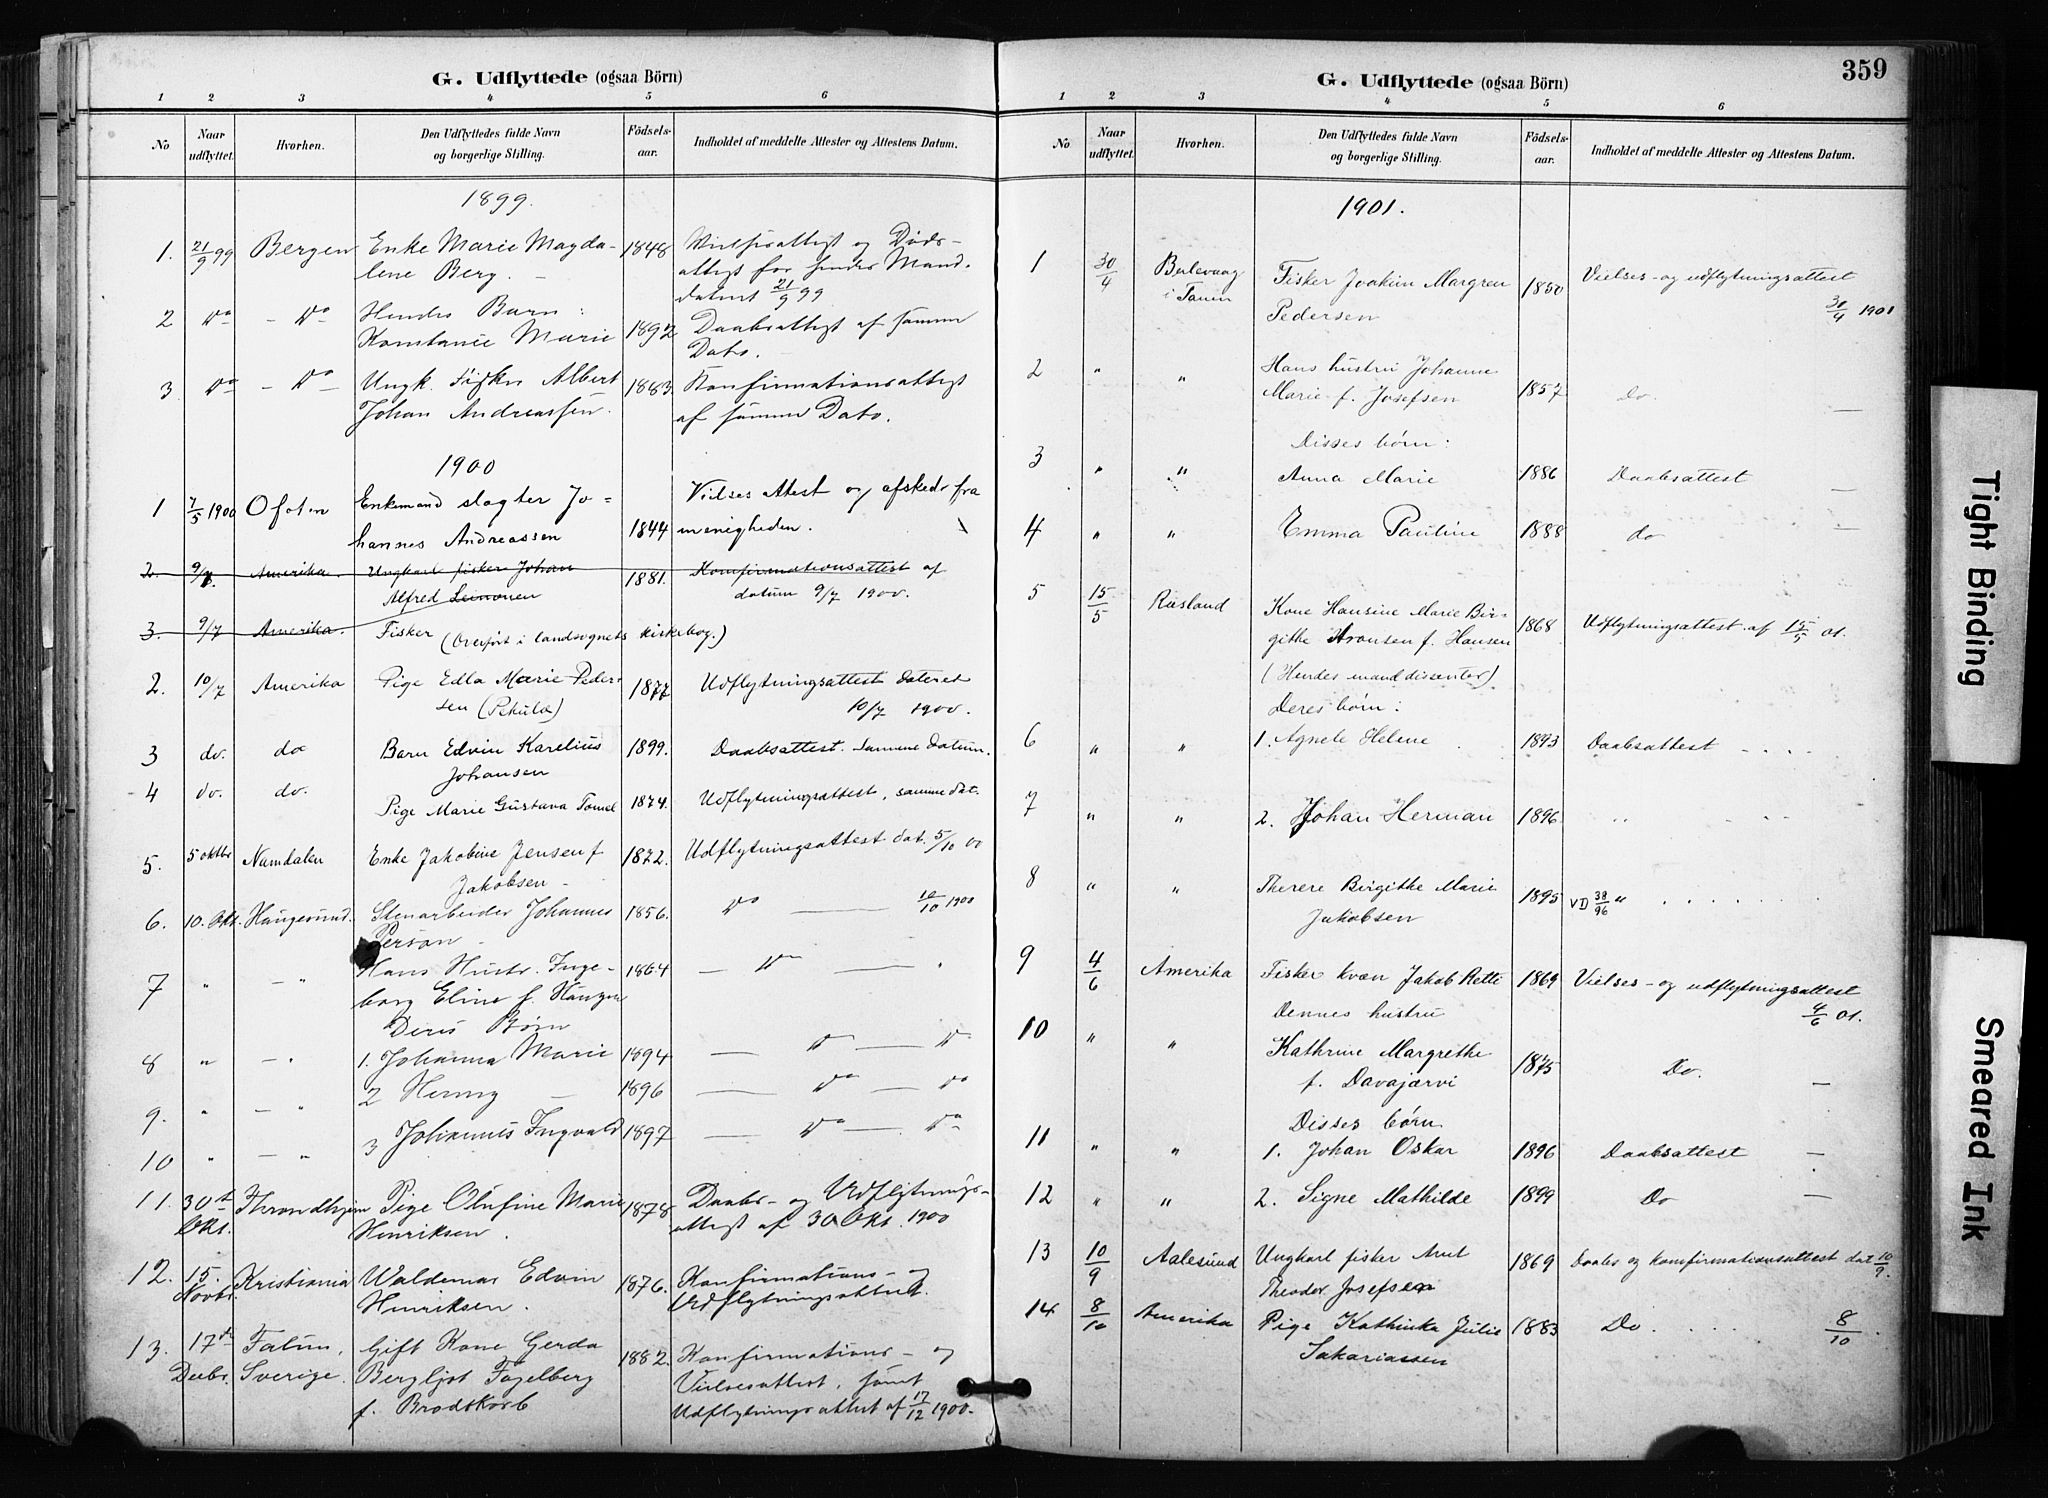 G. Udflyttede (ogsaa Börn)
1 2 3 4 5 6
No Naar udflyttet. Hvorhen. Den Udflyttedes fulde Navn og borgerlige Stilling. Födsels-aar. Indholdet af meddelte Attester og Attestens Datum.
1899.
1. 21/9 99 Bergen Enke Marie Magda- 1848 og Døds-
lene Berg. attest for hendes Mand.
dateret 21/9 99
2 Do - Do Hendes Barn:
Konstance Marie 1892 Daabsattest af samme
Dato.
3 Do - Do Ungk. Fisker Albert 1883. Konfirmationsattest
Johan Andreassen. af samme Dato.
1900
1 7/5 1900 Ofoten Enkemand slagter Jo- Vielses attest og afsked fra
hannes Andreassen 1844 menigheden.
2. 9/7. Amerika. Ungkarl fisker Johan 1881. Konfirmationsattest af
Alfred Leinonen datum 9/7 1900.
3. 9/7 Amerika. Fisker (Overført i landsognets kirkebog.)
2. 10/7 Amerika Pige Edla Marie Peder- 1877 Udflytningsattest dateret
sen (Pekula) 10/7 1900.
3 do. do Barn Edvin Karelius 1899. Daabsattest. samme datum.
Johansen
4 do. do. Pige Marie Gustava Tomel 1874. Udflytningsattest, samme dat.
5. 5 oktbr Namdalen Enke Jakobine Jensen f 1872. Udflytningsattest dat. 5/10 00
Jakobsen
6. 10. Okt. Haugesund. Stenarbeider Johannes 1856. Do 10/10 1900
Person
7 " - " Hans Hustr. Inge- 1864 - Do - "
borg Eline f. Haugen
Deres Børn
8 " - " 1. Johanna Marie 1894 - Do - Do
9. " - " 2 Henny 1896 - Do - Do
10 " - " 3 Johannes Ingvald 1897 - Do - Do
11. 30te Okt. Throndhjem Pige Olufine Marie 1878 Daabs- og Udflytnings-
Henriksen. attest af 30 Okt. 1900
12. 15. Novbr. Kristiania Waldemar Edvin 1876. Konfirmations- og
Henriksen. Udflytningsattest.
13. 17de Decbr. Falun, Sverige. Gift Kone Gerda 1882. Konfirmations- og
Bergljot Fagelberg Vielsesattest, samt
f. Brodtkorb Udflytningsattest af 17/12 1900.
359
G. Udflyttede (ogsaa Börn)
1 2 3 4 5 6
No Naar udflyttet. Hvorhen. Den Udflyttedes fulde Navn og borgerlige Stilling. Födsels-aar. Indholdet af meddelte Attester og Attestens Datum.
1901.
1 30/4 Berlevaag Fisker Joakim Margren 1850 Vielses- og udflytningsattest
i Tanen Pedersen 30/4 1901
2 " " Hans hustru Johanne
Marie f. Josefsen 1857 do. -
Disses børn:
3 " " Anna Marie 1886 Daabsattest -
4 " " Emma Pauline 1888 do -
5 15/5 Rusland Kone Hansine Marie Bir- 1868 Udflytningsattest af 15/5 01.
githe Aronsen f. Hansen
(Hendes mand dissenter)
Deres børn:
6 " " 1. Agnete Helene 1893 Daabsattest . . . .
7 " " 2. Johan Herman 1896 " . .
8 " " Therese Birgithe Marie 1895 VD 38/96 " . . . . . .
Jakobsen
9 4/6 Amerika Fisker kvæn Jakob Retti 1869 Vielses- og udflytningsattest
4/6 01.
10 " " Dennes hustru
Kathrine Margrethe 1875 Do. -
f. Davajærvi
Disses børn
11 " " 1. Johan Oskar 1896 Daabsattest -
12 " " 2. Signe Mathilde 1899 Do -
13 10/9 Aalesund Ungkarl fisker Arnt 1869 Daabs og konfirmationsattest dat 10/9.
Theodor Josefsen
14 8/10 Amerika Pige Kathinka Julie 1883 Do. . . . 8/10.
Sakariassen
Tight Binding
Smeared Ink